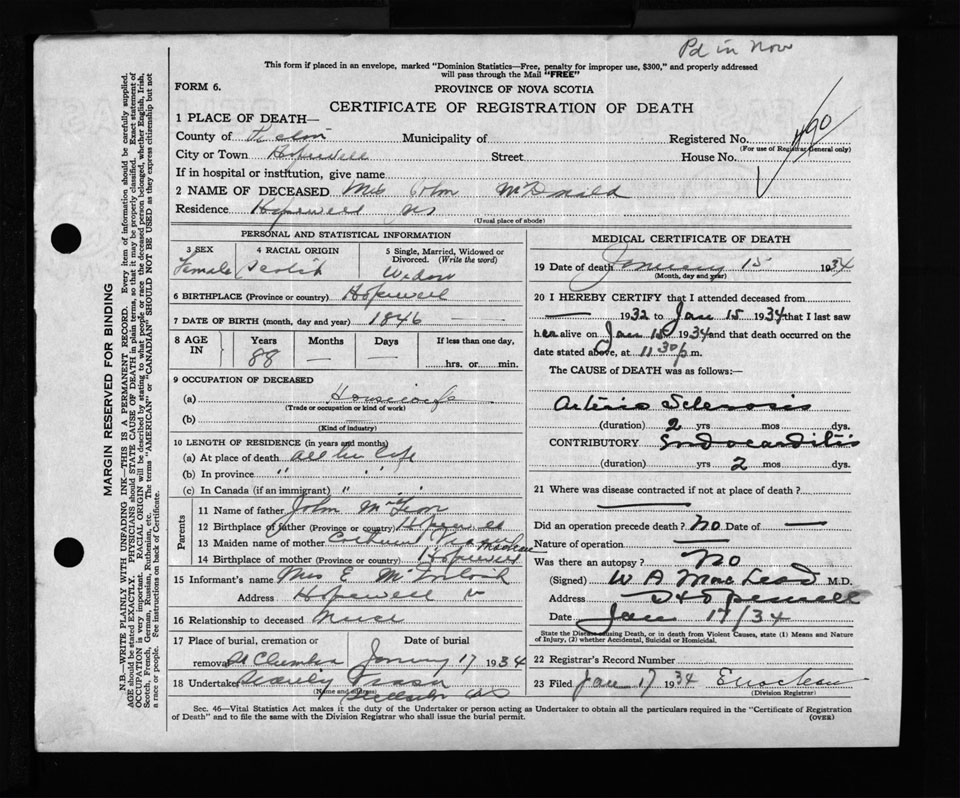 Pd in Nov
This form if placed in an envelope, marked "Dominion Statistics—Free, penalty for improper use, $300," and properly addressed
will pass through the Mail "FREE"
FORM 6.
PROVINCE OF NOVA SCOTIA
CERTIFICATE OF REGISTRATION OF DEATH
1 PLACE OF DEATH—
County of Municipality of Registered No. 490
(For use of Registrar General only)
City or Town Hopewell Street House No.
If in hospital or institution, give name
2 NAME OF DECEASED Mrs John McDonald
Residence Hopewell NS
(Usual place of abode)
PERSONAL AND STATISTICAL INFORMATION
3 SEX 4 RACIAL ORIGIN 5 Single, Married, Widowed or
Divorced. (Write the word)
Female Scotch Widow
6 BIRTHPLACE (Province or country) Hopewell
7 DATE OF BIRTH (month, day and year) 1846 —
8 AGE IN Years Months Days If less than one day,
88 — — hrs. or min.
9 OCCUPATION OF DECEASED
(a) Housewife
(Trade or occupation or kind of work)
(b)
(Kind of industry)
10 LENGTH OF RESIDENCE (in years and months)
(a) At place of death all her life
(b) In province " "
(c) In Canada (if an immigrant) " "
Parents
11 Name of father John
12 Birthplace of father (Province or country) Hopewell
13 Maiden name of mother
14 Birthplace of mother (Province or country) Hopewell
15 Informant's name Mrs E
Address Hopewell
16 Relationship to deceased Niece
17 Place of burial, cremation or Date of burial
removal January 17 1934
18 Undertaker
(Name and address)
MEDICAL CERTIFICATE OF DEATH
19 Date of death January 15 1934
(Month, day and year)
20 I HEREBY CERTIFY that I attended deceased from
— 1932 to Jan 15 1934 that I last saw
her alive on Jan 15 1934 and that death occurred on the
date stated above, at 11 30 p.m.
The CAUSE of DEATH was as follows:—
Arterio Sclerosis
(duration) 2 yrs mos dys.
CONTRIBUTORY Endocarditis
(duration) yrs 2 mos dys.
21 Where was disease contracted if not at place of death?
Did an operation precede death? No Date of —
Nature of operation —
Was there an autopsy? No
(Signed) W A MacLeod M.D.
Address Hopewell
Date Jan 17/34
State the Disease causing Death, or in death from Violent Causes, state (1) Means and Nature
of Injury, (2) whether Accidental, Suicidal or Homicidal.
22 Registrar's Record Number
23 Filed Jan 17 1934
(Division Registrar)
Sec. 46—Vital Statistics Act makes it the duty of the Undertaker or person acting as Undertaker to obtain all the particulars required in the "Certificate of Registration
of Death" and to file the same with the Division Registrar who shall issue the burial permit.
(OVER)
MARGIN RESERVED FOR BINDING
N.B.—WRITE PLAINLY WITH UNFADING INK—THIS IS A PERMANENT RECORD. Every item of information should be carefully supplied.
AGE should be stated EXACTLY. PHYSICIANS should STATE CAUSE OF DEATH in plain terms, so that it may be properly classified. Exact statement of
OCCUPATION is very important. RACIAL ORIGIN will be described by stating to what people or race the deceased person belonged, whether English, Irish,
Scotch, French, German, Russian, Ruthenian, etc. The terms "AMERICAN" or "CANADIAN" SHOULD NOT BE USED as they express citizenship but not
a race or people. Fee instructions on back of Certificate.